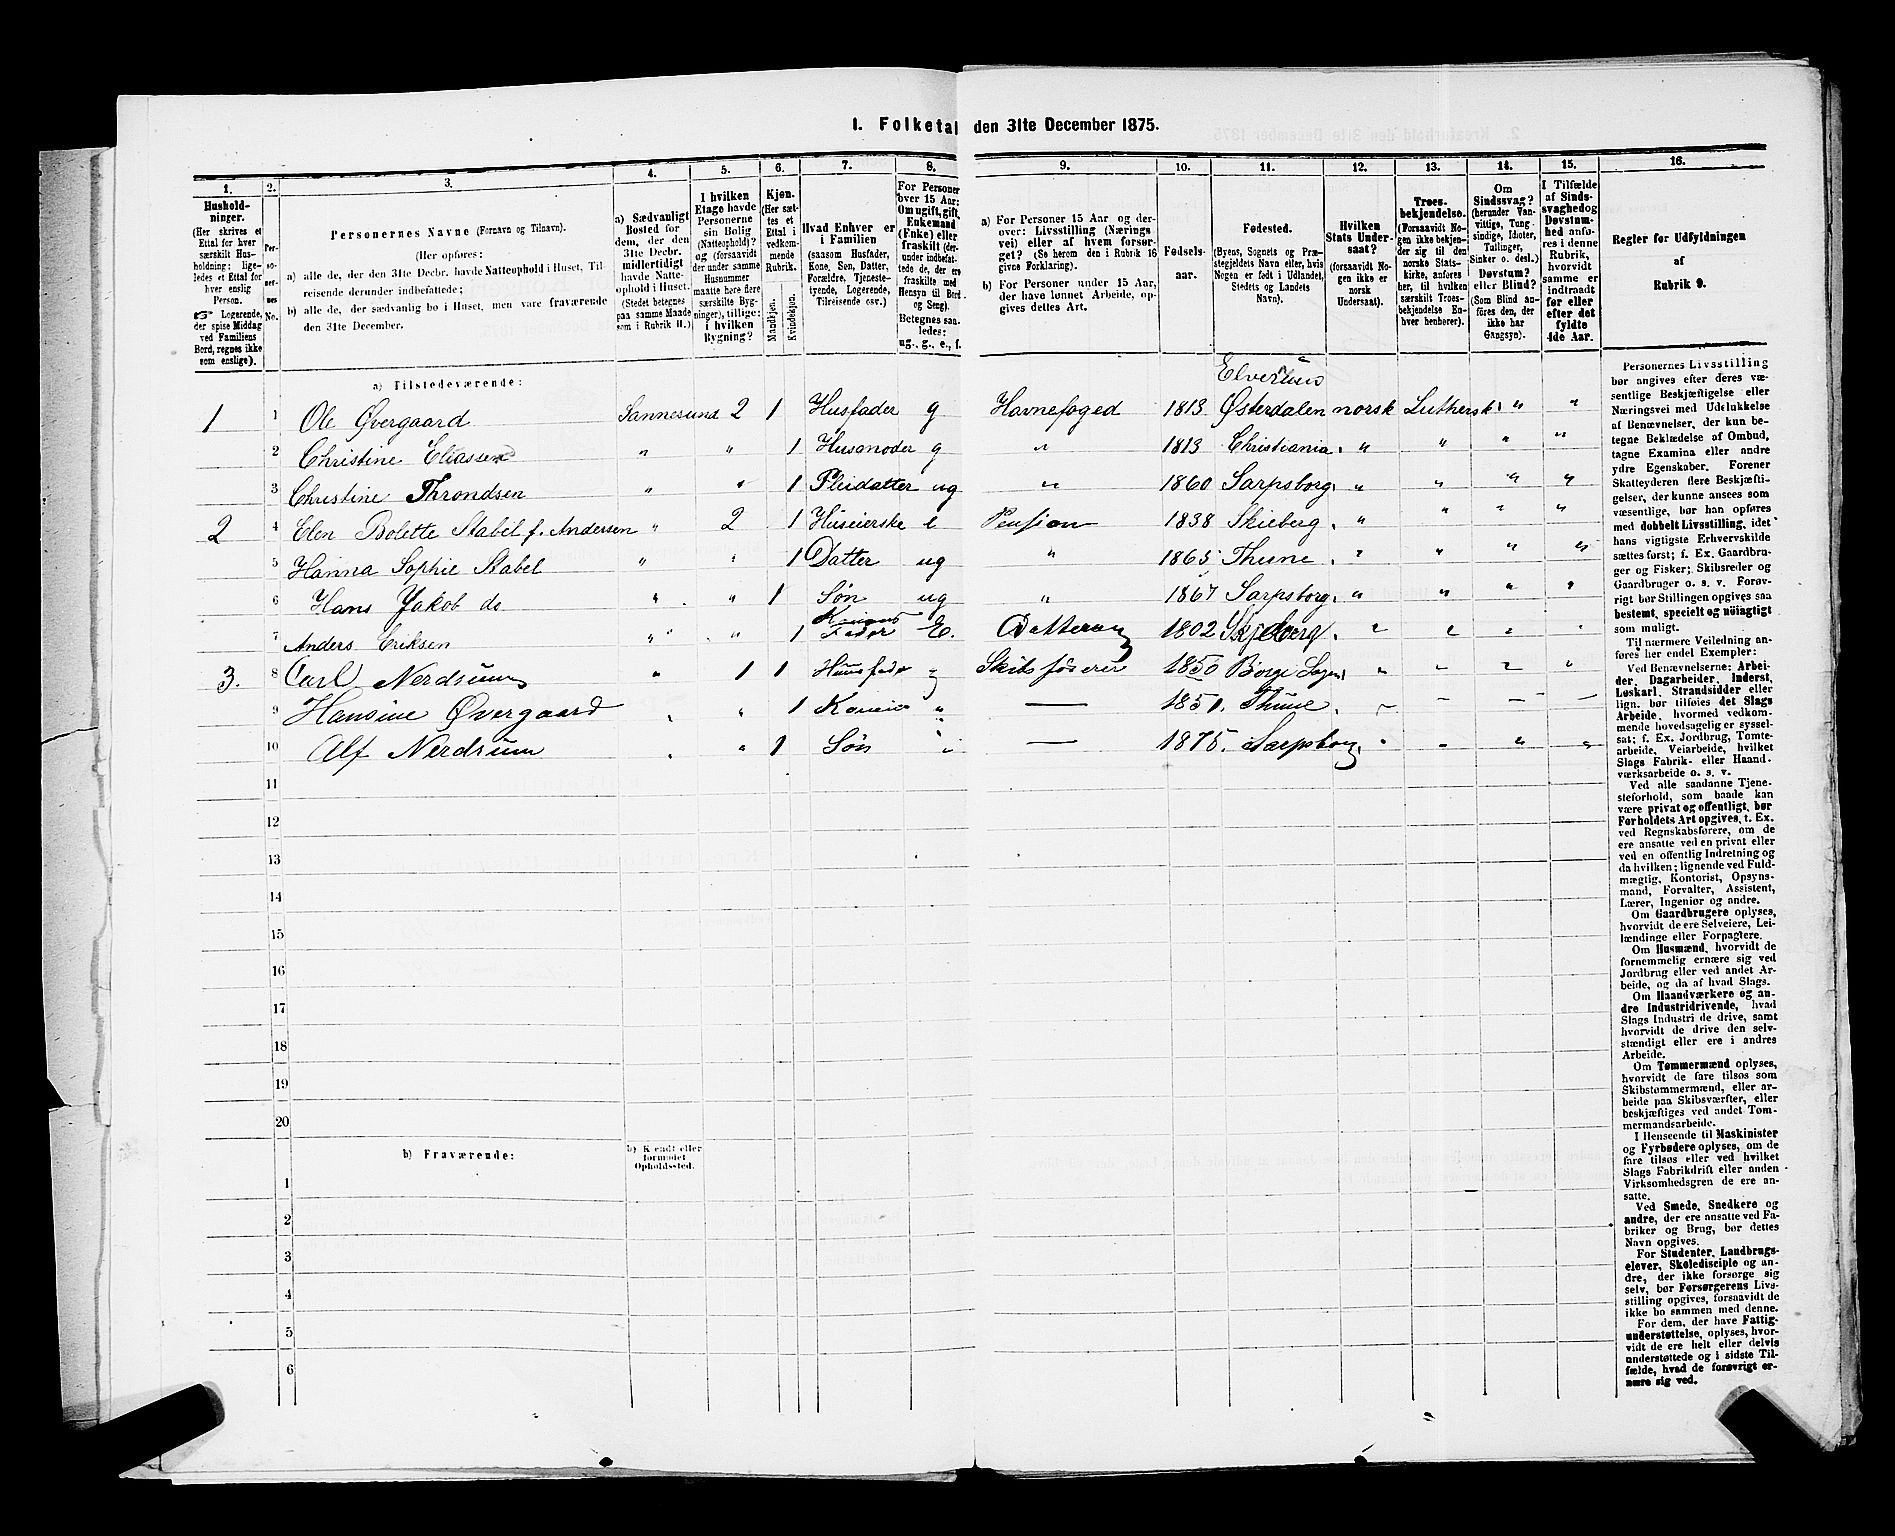 1. Folketal den 31te December 1875.
1.
2.
3.
4.
5.
6.
7.
8.
9.
10.
11.
12.
13.
14.
15.
16.
Hushold-
ninger.
(Her skrives et
Ettal for hver
særskilt Hus-
holdning; lige-
ledes et Ettal for
hver enslig
Person.
☞ Logerende,
der spise Middag
ved Familiens
Bord, regnes ikke
som enslige).
Per-
so-
ner-
nes
No.
Personernes Navne (Fornavn og Tilnavn).
(Her opføres:
a) alle de, der den 31te Decbr. havde Natteophold i Huset, Til-
reisende derunder indbefattede;
b) alle de, der sædvanlig bo i Huset, men vare fraværende
den 31te December.
a) Sædvanligt
Bosted for
dem, der den
31te Decbr.
midlertidigt
havde Natte-
ophold i Huset.
(Stedet betegnes
paa samme Maade
som i Rubrik 11.)
I hvilken
Etage havde
Personerne
sin Bolig
(Natteophold)?
og (forsaavidt
der under samme
Husnummer
maatte høre flere
særskilte Byg-
ninger), tillige:
i hvilken
Bygning?
Kjøn.
(Her sæt-
tes et
Ettal i
vedkom-
mende
Rubrik.
Mandkjøn.
Kvindekjøn.
Hvad Enhver er
i Familien
(saasom Husfader,
Kone, Søn, Datter,
Forældre, Tjeneste-
tyende, Logerende,
Tilreisende osv.)
For Personer
over 15 Aar:
Om ugift, gift,
Enkemand
(Enke) eller
fraskilt (der-
under indbefat-
tede de, der ere
fraskilte med
Hensyn til Bord
og Seng).
Betegnes saa-
ledes:
ug., g., e., f.
a) For Personer 15 Aar og der-
over: Livsstilling (Nærings-
vei) eller af hvem forsør-
get? (Se herom den i Rubrik 16
givne Forklaring).
b) For Personer under 15 Aar,
der have lønnet Arbeide, op-
gives dettes Art.
Fødsels-
aar.
Fødested.
(Byens, Sognets og Præ-
stegjeldets Navn eller, hvis
Nogen er født i Udlandet,
Stedets og Landets
Navn).
Hvilken
Stats Under-
saat?
(forsaavidt No-
gen ikke er
norsk
Undersaat).
Troes-
bekjendelse.
(Forsaavidt No-
gen ikke bekjen-
der sig til den
norske Stats-
kirke, anføres
her, til hvilken
særskilt Troes-
bekjendelse En-
hver henhører).
Om
Sindssvag?
(herunder Van-
vittige, Tung-
sindige, Idioter,
Tullinger,
Sinker o. desl.)
Døvstum?
eller Blind?
(Som Blind an-
føres den, der
ikke har
Gangsyn).
I Tilfælde
af Sinds-
svaghed og
Døvstum-
hed anfø-
res i denne
Rubrik,
hvorvidt
samme er
indtraadt
før eller
efter det
fyldte
4de Aar.
Regler for Udfyldningen
af
Rubrik 9.
a) Tilstedeværende:
Elverum
1 1 Ole Øvergaard Sannesund 2 1 Husfader g Havnefoged 1813 Østerdalen norsk Luthersk " "
2 Christine Eliassen " " 1 Husmoder g " 1813 Christiania " " " "
3 Christine Throndsen " " 1 Pleidatter ug " 1860 Sarpsborg " " " "
2 4 Elen Bolette Stabel f. Andersen " 2 1 Huseierske e Pension 1838 Skieberg " " " "
5 Hanna Sophie Stabel " " 1 Datter ug " 1865 Thune " " " "
6 Hans Jakob do " " 1 Søn ug " 1867 Sarpsborg " " " "
7 Anders Eriksen " " 1 Konens Fader E. Datteren 1802 Skjeberg " " " "
3. 8 Carl Nerdrum " 1 1 Huusfader g Skibsfører 1850 Borge Sogn " " " "
9 Hansine Øvergaard " " 1 Kone " — 1851. Thune " — — —
10 Alf Nerdrum " " 1 Søn " — 1875. Sarpsborg " " " "
11
12
13
14
15
16
17
18
19
20
b) Fraværende:
b) Kjendt eller
formodet
Opholdssted.
1
2
3
4
5
6
Personernes Livsstilling
bør angives efter deres væ-
sentlige Beskjæftigelse eller
Næringsvei med Udelukkelse
af Benævnelser, der kun be-
tegne Beklædelse af Ombud,
tagne Examina eller andre
ydre Egenskaber. Forener
Skatteyderen flere Beskjæfti-
gelser, der kunne ansees som
væsentlige, bør han opføres
med dobbelt Livsstilling, idet
hans vigtigste Erhvervskilde
sættes først; f. Ex. Gaardbru-
ger og Fisker; Skibsreder og
Gaardbruger o. s. v. Forøv-
rigt bør Stillingen opgives saa
bestemt, specielt og nøiagtigt
som muligt.
Til nærmere Veiledning an-
føres her endel Exempler:
Ved Benævnelserne: Arbei-
der, Dagarbeider, Inderst,
Løskarl, Strandsidder eller
lign. bør tilføies det Slags
Arbeide, hvormed vedkom-
mende hovedsagelig er syssel-
sat; f. Ex. Jordbrug, Tomte-
arbeide, Veiarbeide, hvilket
Slags Fabrik- eller Haand-
værksarbeide o. s. v.
Ved alle saadanne Tjene-
steforhold, som baade kan
være privat og offentligt, bør
Forholdets Art opgives, t. Ex.
ved Regnskabsførere, om de
ere ansatte ved en privat eller
ved en offentlig Indretning og
da hvilken; lignende ved Fuld-
mægtig, Kontorist, Opsyns-
mand, Forvalter, Assistent,
Lærer, Ingeniør og andre.
Om Gaardbrugere oplyses,
hvorvidt de ere Selveiere, Lei-
lændinge eller Forpagtere.
Om Husmænd, hvorvidt de
fornemmelig ernære sig ved
Jordbrug eller ved andet Ar-
beide, og da af hvad Slags.
Om Haandværkere og an-
dre Industridrivende, hvad
Slags Industri de drive, samt
hvorvidt de drive den selv-
stændigt eller ere i andres
Arbeide.
Om Tømmermænd oplyses,
hvorvidt de fare tilsøs som
Skibstømmermænd, eller ar-
beide paa Skibsværfter, eller
beskjæftiges ved andet Tøm-
mermandsarbeide.
I Henseende til Maskinister
og Fyrbødere oplyses, om de
fare tilsøs eller ved hvilket
Slags Fabrikdrift eller anden
Virksomhedsgren de ere an-
satte.
Ved Smede, Snedkere og
andre, der ere ansatte ved Fa-
briker og Brug, bør dettes
Navn opgives.
For Studenter, Landbrugs-
elever, Skoledisciple og an-
dre, der ikke forsørge sig
selv, bør Forsørgerens Livs-
stilling opgives, forsaavidt de
ikke bo sammen med denne.
For dem, der have Fattig-
understøttelse, oplyses, hvor-
vidt de ere helt eller delvis
understøttede og i sidste Til-
fælde, hvad de forøvrigt er-
nære sig ved.